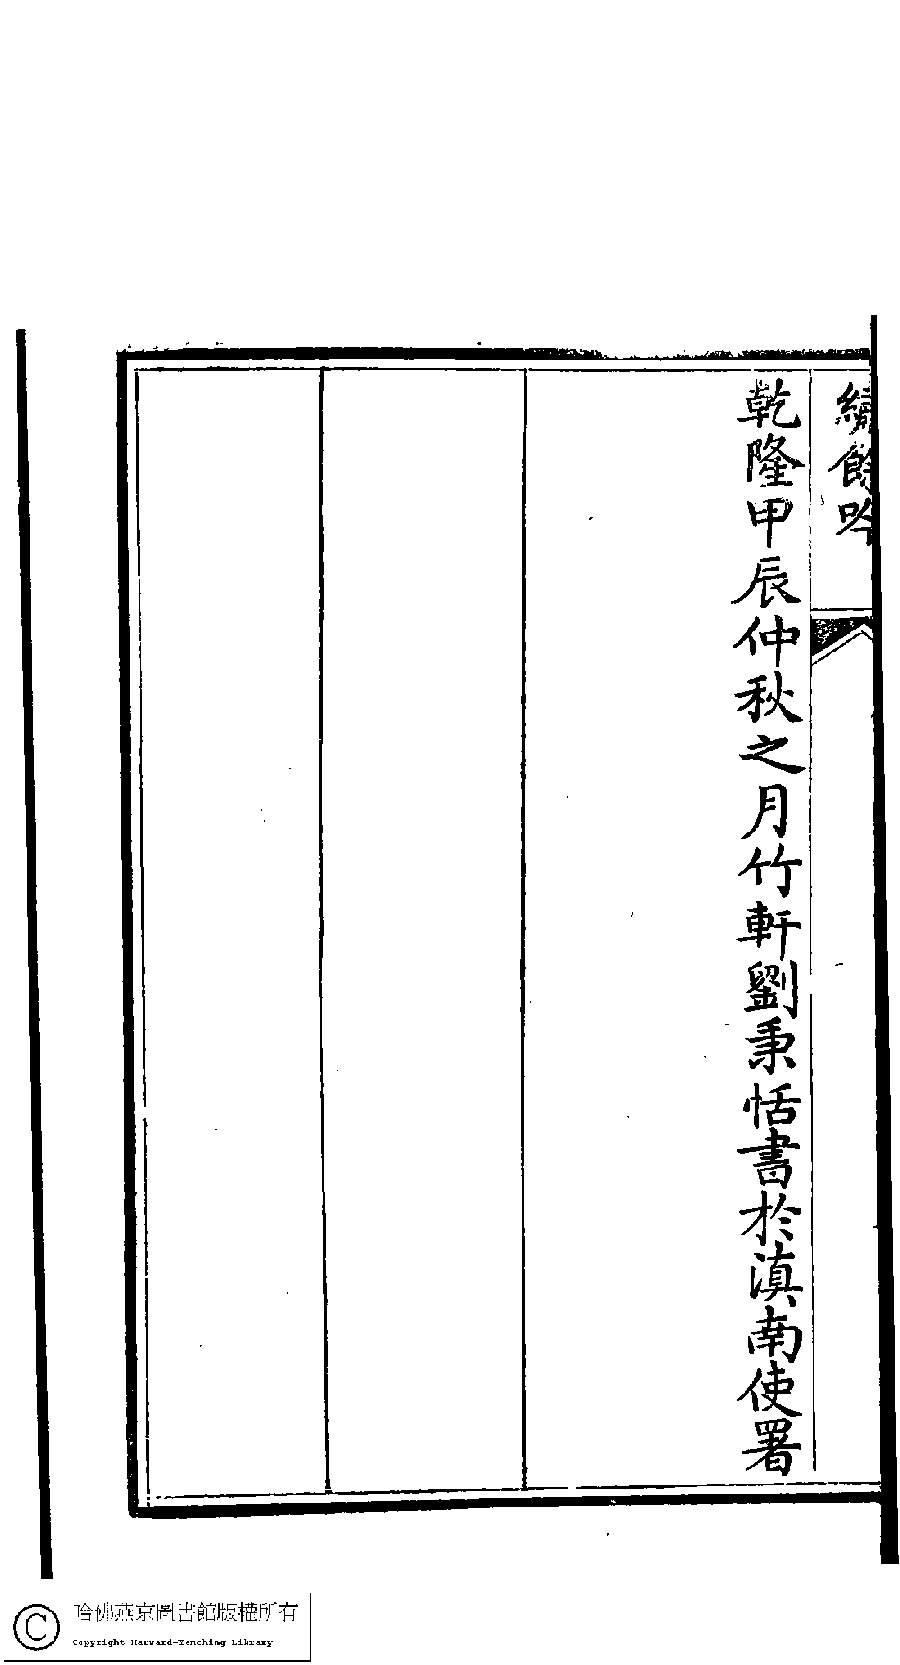 繡餘吟
乾隆甲辰仲秋之月竹軒劉秉恬書於滇南使署
哈佛燕京圖書館版權所有
Copyright Harvard-Yenching Library